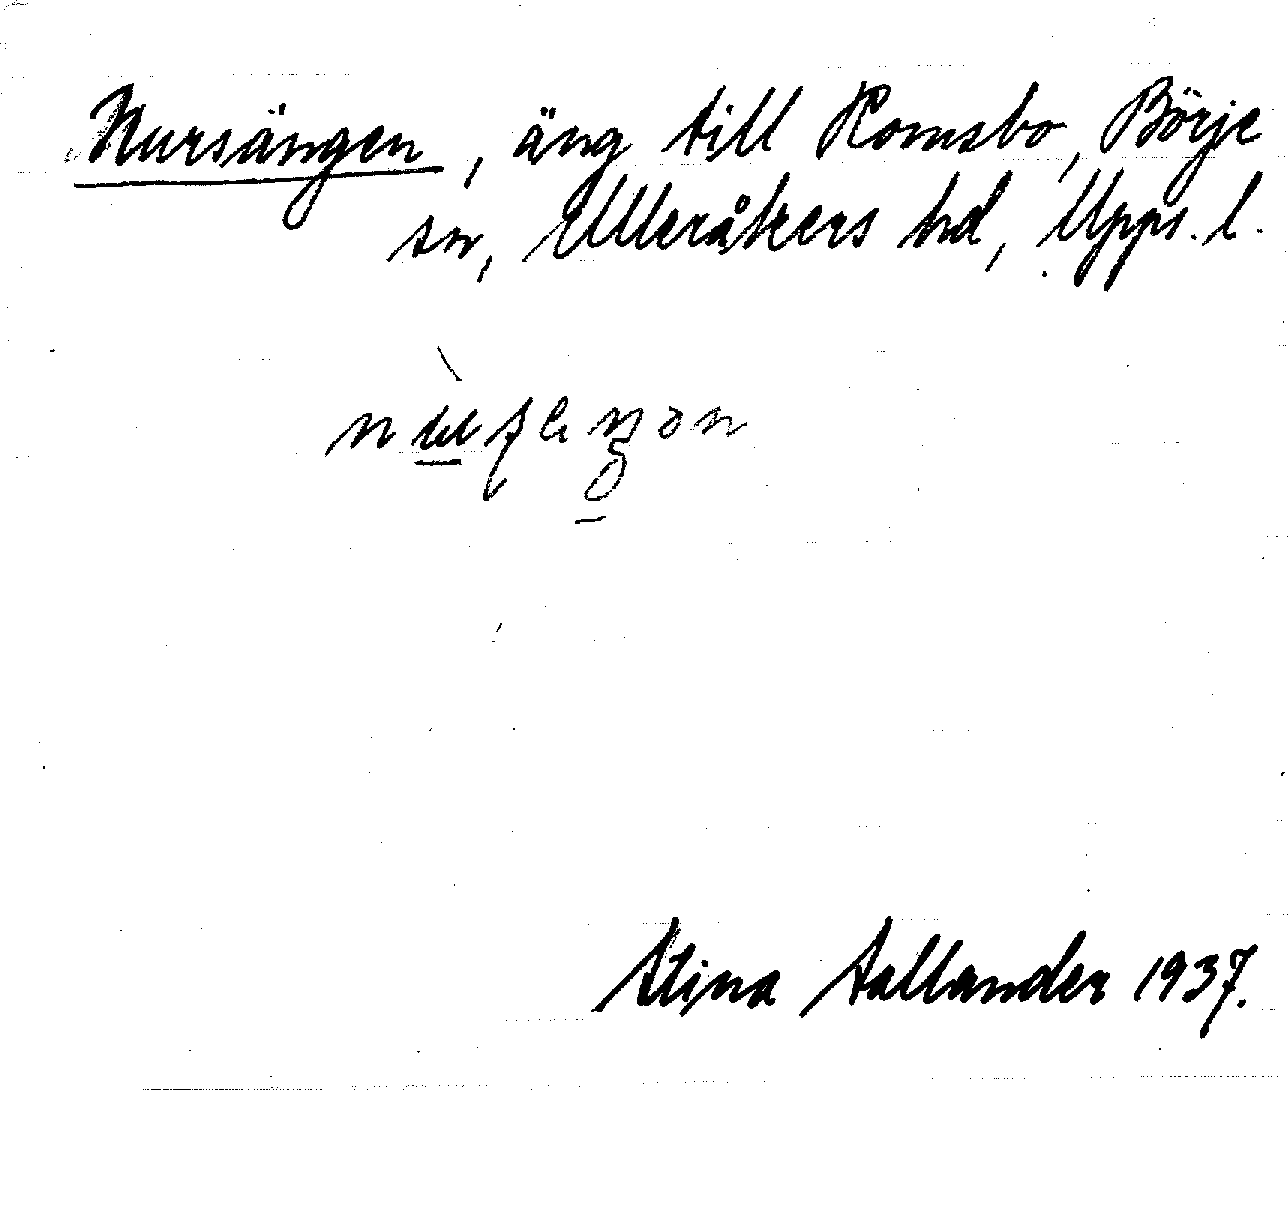 Nursängen, äng till Romsbo, Börje
sn, Ulleråkers hd, Upps. l.
Stina Sallander 1937.